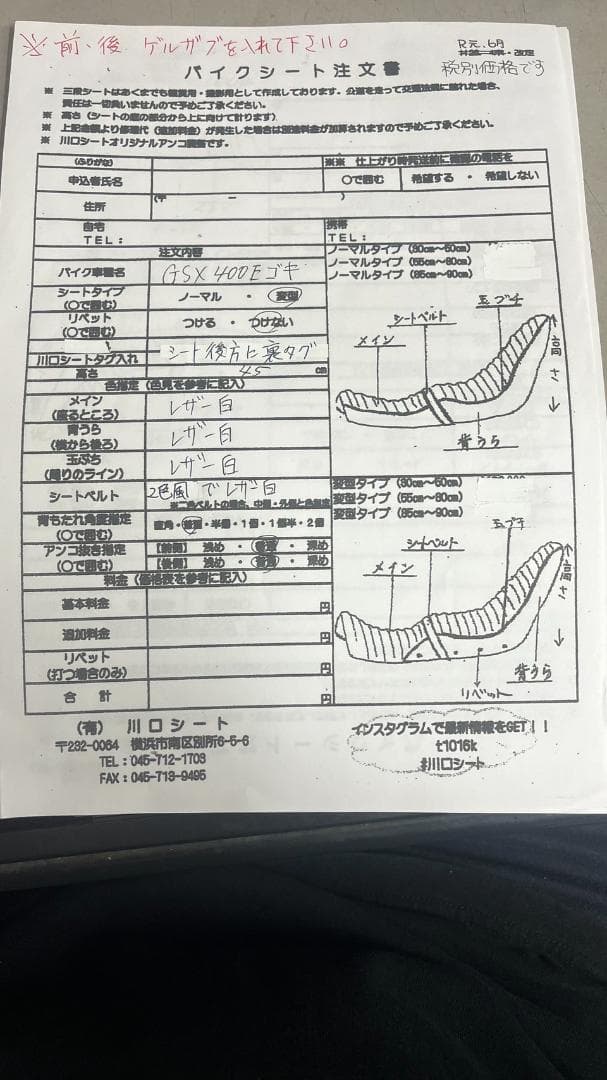 ※ 前、後 ゲルザブを入れて下さい。
R元.6月
改定
バイクシート注文書
税別価格です
※ 三段シートはあくまでも観賞用・撮影用として作成しております。公道を走って交通法規に触れた場合、
責任は一切負いませんので予めご了承ください。
※ 高さ(シートの底の部分から上に向けて計ります)
※ 上記金額より修理代(追加料金)が発生した場合は別途料金が加算されますので予めご了承ください。
※ 川口シートオリジナルアンコ調整です。
(ふりがな)
※※ 仕上がり時発送前に確認の電話を
申込者氏名
〇で囲む
希望する ・ 希望しない
住所
(〒 ー )
自宅
TEL:
携帯
TEL:
注文内容
ノーマルタイプ(30cm~50cm)
ノーマルタイプ(55cm~80cm)
ノーマルタイプ(85cm~90cm)
バイク車種名
GSX400E ゴキ
シートタイプ
(〇で囲む)
ノーマル ・ 変型
リベット
(〇で囲む)
つける ・ つけない
川口シートタグ入れ
シート後方に裏タグ
高さ
45 cm
色指定(色見を参考に記入)
メイン
(座るところ)
レザー白
背うら
(横から後ろ)
レザー白
玉ぶち
(周りのライン)
レザー白
シートベルト
2色風でレザー白
※二色ベルトの場合、中側・外側と色指定
背もたれ角度指定
(〇で囲む)
直角・普通・半個・1個・1個半・2個
アンコ抜き指定
(〇で囲む)
【前側】 浅め ・ 普通 ・ 深め
【後側】 浅め ・ 普通 ・ 深め
料金(価格表を参考に記入)
基本料金
円
追加料金
円
リベット
(打つ場合のみ)
円
合 計
円
メイン
シートベルト
玉ブチ
高さ
背うら
変型タイプ(30cm~50cm)
変型タイプ(55cm~80cm)
変型タイプ(85cm~90cm)
メイン
シートベルト
玉ブチ
高さ
背うら
リベット
(有) 川口シート
〒232-0064 横浜市南区別所6-5-6
TEL:045-712-1703
FAX:045-713-9495
インスタグラムで最新情報をGET!!
t1016k
#川口シート